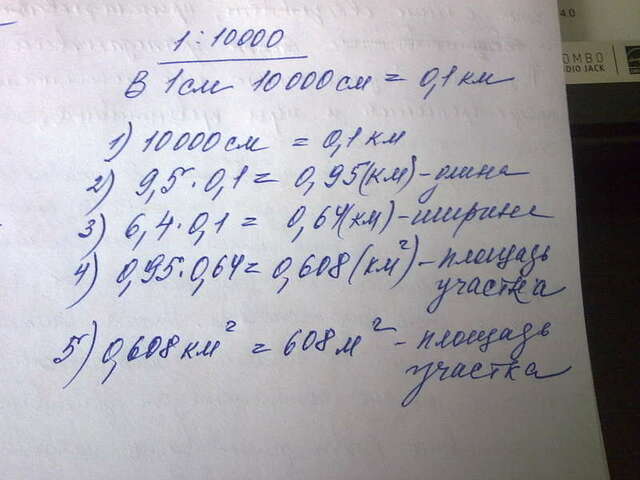 1:10000
В 1см 10000см = 0,1 км
1) 10000см = 0,1 км
2) 9,5 · 0,1 = 0,95(км) - длина
3) 6,4 · 0,1 = 0,64(км) - ширина
4) 0,95 · 0,64 = 0,608 (км²) - площадь
участка
5) 0,608 км² = 608 м² - площадь
участка
4.0
OMBO
DIO JACK